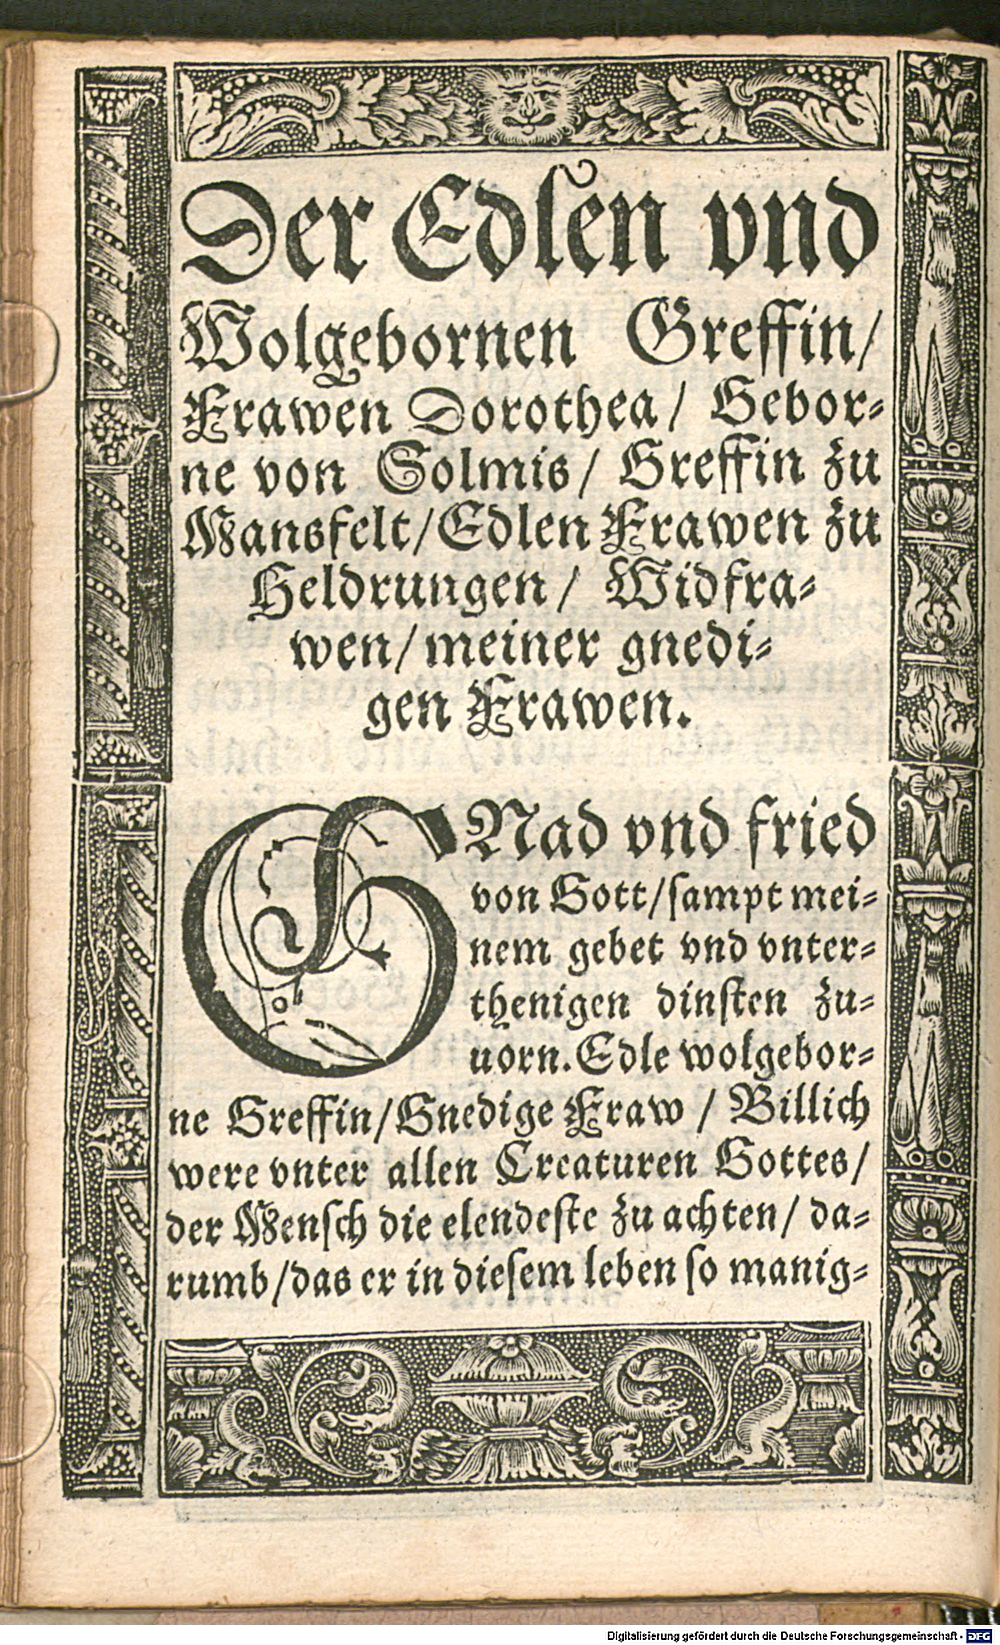 Der Edlen vnd
Wolgebornen Greffin/
Frawen Dorothea/ Gebor-
ne von Solmis/ Greffin zu
Mansfelt/Edlen Frawen zu
Heldrungen/ Widfra-
wen/meiner gnedi-
gen Frawen.
GNad vnd fried
von Gott/sampt mei-
nem gebet vnd vnter-
thenigen dinsten zu-
uorn. Edle wolgebor-
ne Greffin/Gnedige Fraw / Billich
were vnter allen Creaturen Gottes/
der Mensch die elendeste zu achten/ da-
rumb/das er in diesem leben so manig-
Digitalisierung gefördert durch die Deutsche Forschungsgemeinschaft - DFG